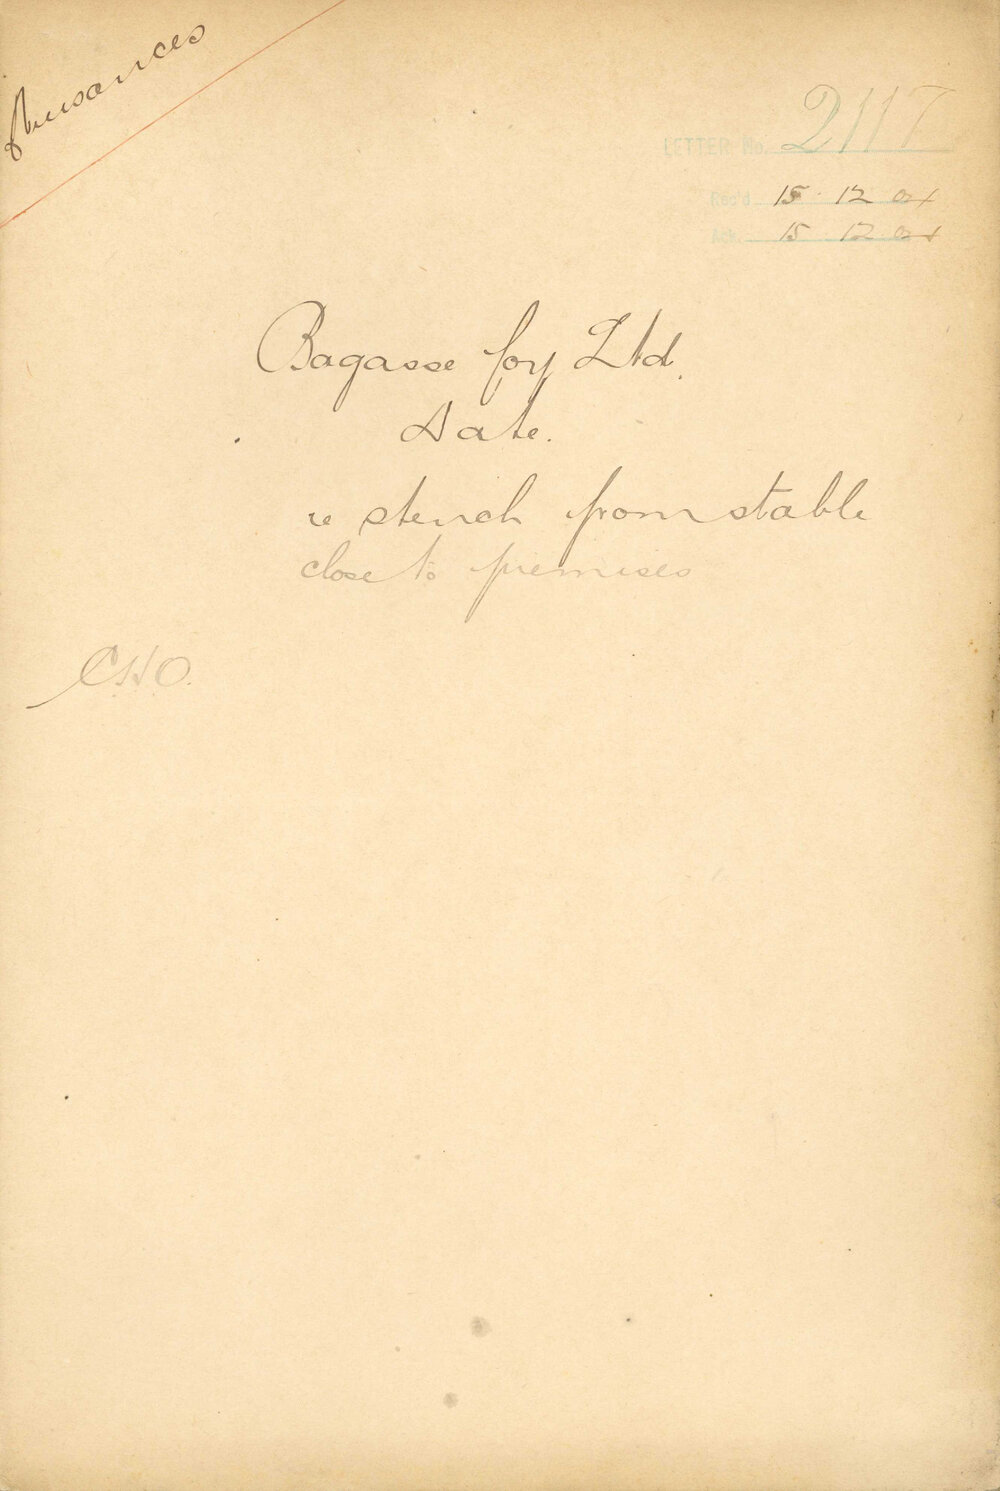 Nuisances
LETTER No. 2117
Rec'd 15.12.04
Ack. 15 12 04
Bagasse Coy Ltd.
State.
re stench from stable
close to premises
C.H.O.